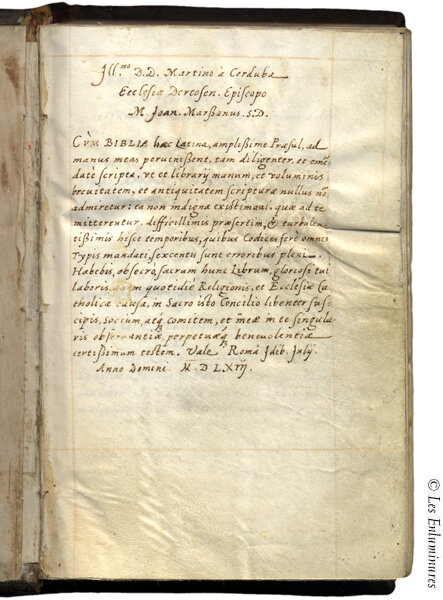 Ill.mo D.D. Martino à Corduba
Ecclesiæ Dertosen. Episcopo
M. Joan. Marßanus. S.D.
CVM BIBLIA hæc Latina, amplissime Præsul, ad
manus meas peruenissent, tam diligenter, et emē
datè scripta, vt et librarij manum, et voluminis
breuitatem, et antiquitatem scripturæ nullus nō
admiretur; ea non indigna existimaui, quæ ad te
mitterentur, difficillimis præsertim, & turbulen
tissimis hisce temporibus, quibus Codices ferè omnes
Typis mandati, sexcentis sunt erroribus pleni.
Habebis, obsecro, sacrum hunc Librum, gloriosi tui
laboris, quem quotidie Religionis, et Ecclesiæ Ca
tholicæ causa, in Sacro isto Concilio libenter sus
cipis, socium, atq comitem, et meæ in te singula
ris obseruantiæ, perpetuæq beneuolentiæ
certissimum testem. Vale Romæ Idib. Iulij.
Anno Domini. M. D LXIII.
© Les Enluminures